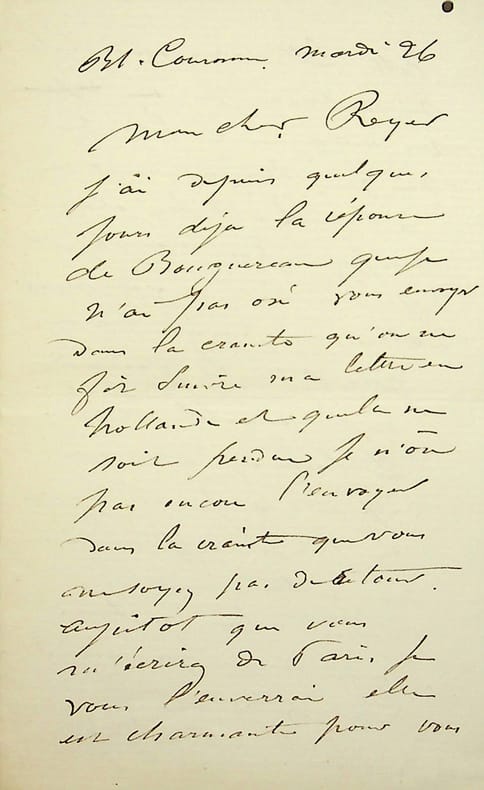 Bt. Couronne. mardi 26
Mon cher Reyer
j'ai depuis quelques
jours déja la réponse
de Bouguereau que je
n'ai pas osé vous envoyer
dans la crainte qu'on ne
fît suivre ma lettre en
hollande et qu'elle ne
soit perdue je n'ose
pas encore l'envoyer
dans la crainte que vous
ne soyez pas de retour.
aussitot que vous
m'écrirez de Paris, je
vous l'enverrai elle
est charmante pour vous